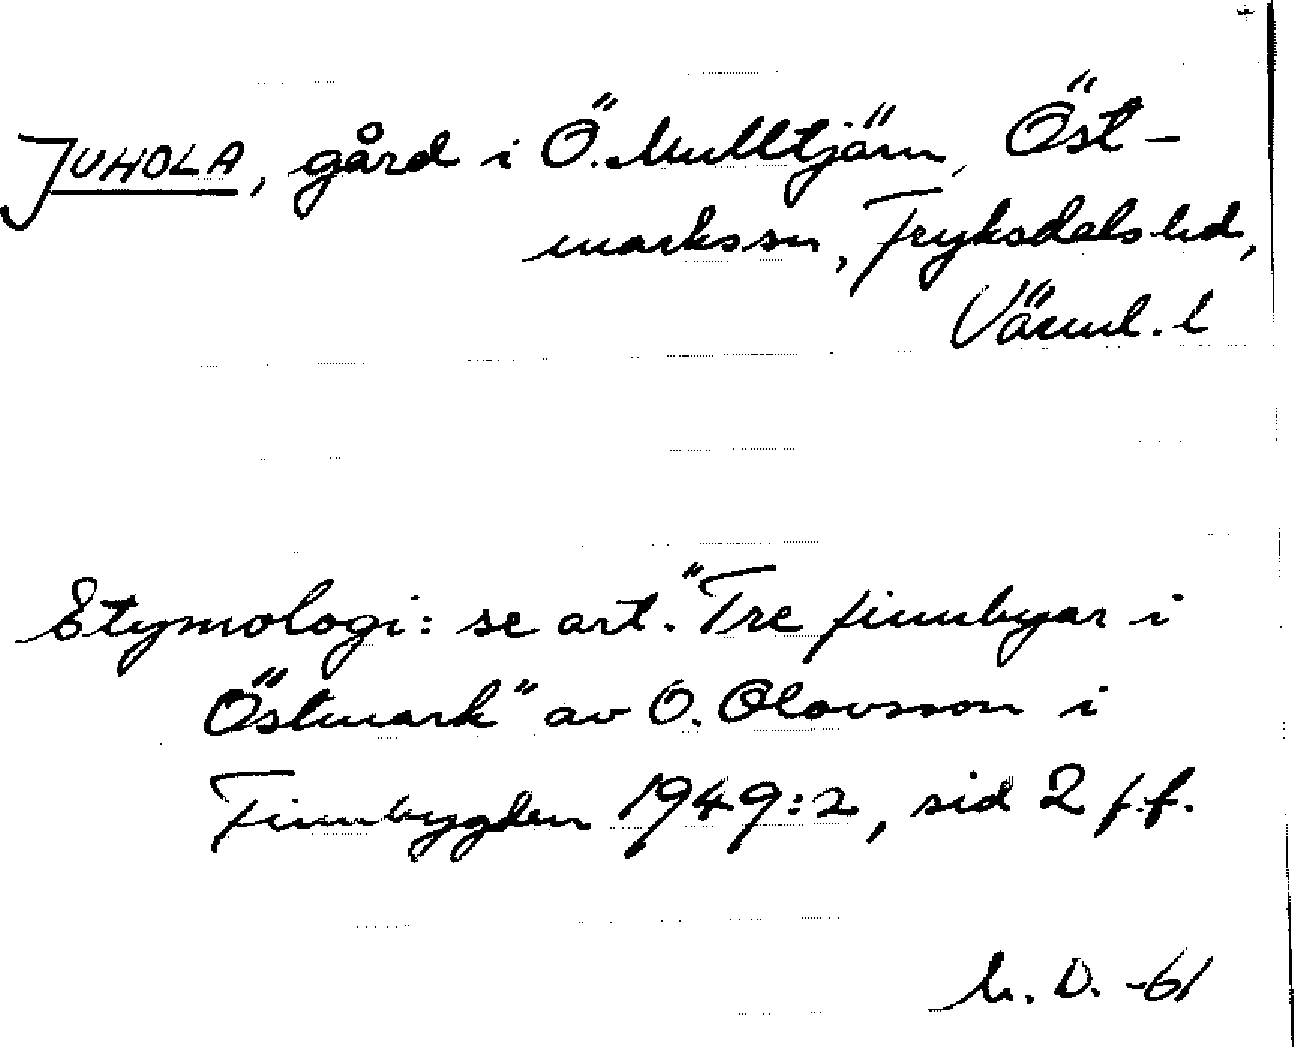 JUHOLA, gård i Ö. Mulltjärn, Öst-
markssn, Fryksdals hd,
Värml. l
Etymologi: se art. "Tre finnbyar i
Östmark" av O. Olovsson i
Finnbygden 1949:2, sid 2 f.f.
D. -61